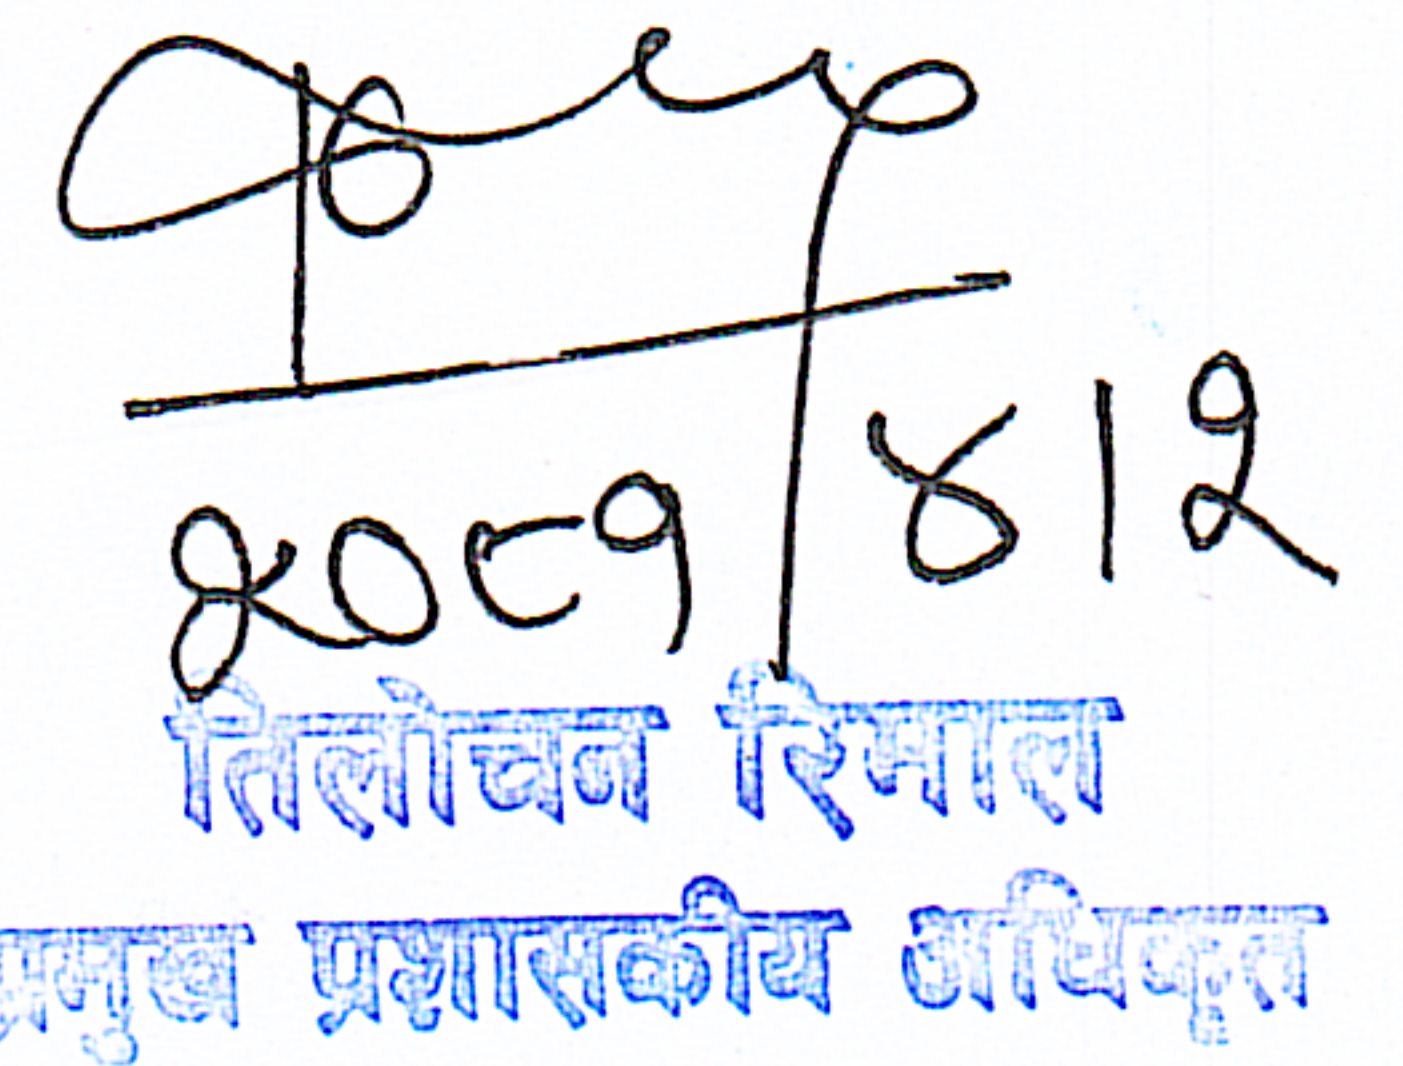 २०८१/४।२
तिलोचन रिमाल
प्रमुख प्रशासकीय अधिकृत